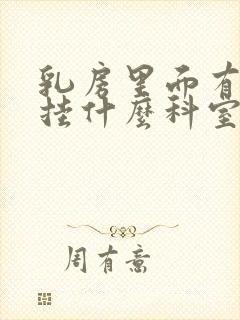 乳房里而有
挂什麼科室
周有意